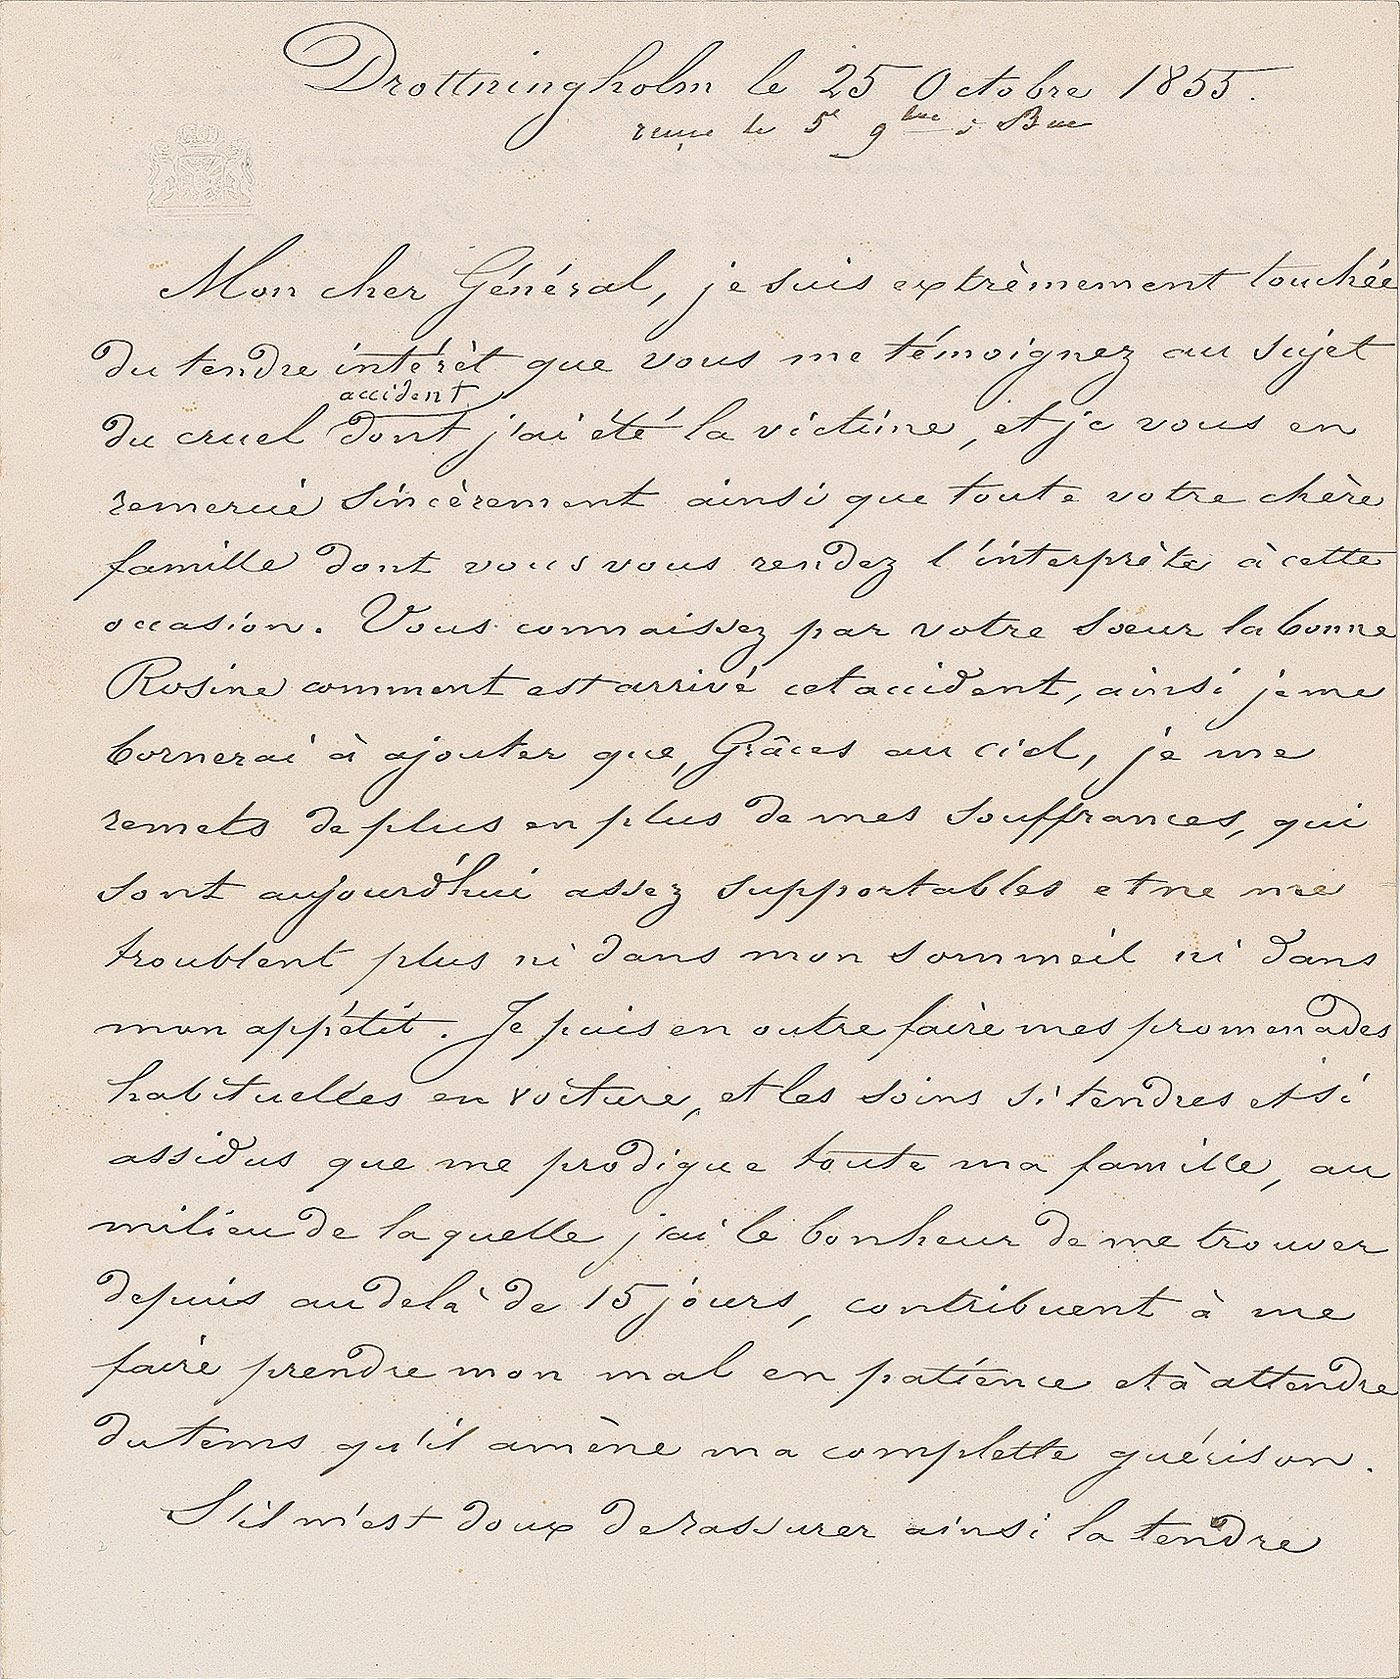 Drottningholm le 25 Octobre 1855.
reçue le 5e 9bre
Mon cher Général, je suis extrèmement touchée
du tendre intérèt que vous me témoignez au sujet
accident
du cruel dont j'ai été la victime, et je vous en
remercie sincèrement ainsi que toute votre chère
famille dont vous vous rendez l'interprète à cette
occasion. Vous connaissez par votre soeur la bonne
Rosine comment est arrivé cet accident, ainsi je me
bornerai à ajouter que, Grâces au ciel, je me
remets de plus en plus de mes souffrances, qui
sont aujourd'hui assez supportables et ne me
troublent plus ni dans mon sommeil ni dans
mon appétit. Je puis en outre faire mes promenades
habituelles en voiture, et les soins si tendres et si
assidus que me prodigue toute ma famille, au
milieu de laquelle j'ai le bonheur de me trouver
depuis au delà de 15 jours, contribuent à me
faire prendre mon mal en patience et à attendre
du tems qu'il amène ma complette guérison.
S'il m'est doux de rassurer ainsi la tendre